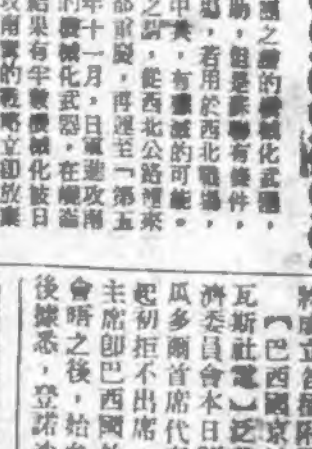 之的機械化武器，
助，但是蘇聯有條件，
，若用於西北戰場，
中共，有的可能。
之謂，從西北公路運來
部重慶，再運至「第五
年十一月，日軍進攻南
的機械化武器，在崑崙
結果有半數機械化被日
攻南寧的戰略立即放棄
將成立各種附
【巴西國京
瓦斯社電】泛
濟委員會本日
瓜多爾首席代
起初拒不出席
主席即巴西國
會晤之後，始
後據悉，登諾